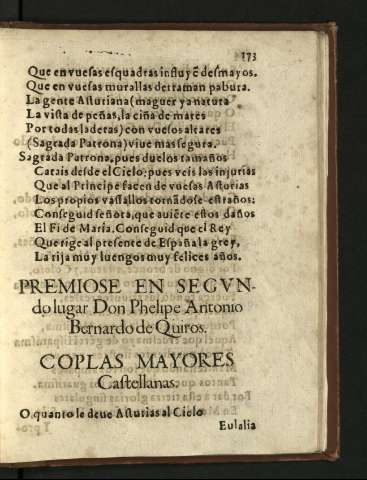 173
Que en vuesas esquadras influyẽ desmayos.
Que en vuesas murallas derraman pabura.
La gente Asturiana (maguer ya natura
La vista de peñas, la ciña de mares
Por todas laderas) con vuesos altares
(Sagrada Patrona) viue mas segura.
Sagrada Patrona, pues duelos tamaños
Catais desde el Cielo; pues veis las injurias
Que al Principe facen de vuesas Asturias
Los propios vassallos tornãdose estraños:
Conseguid señora, que auiẽte estos daños
El Fi de Maria. Conseguid que el Rey
Que rige al presente de España la grey,
La rija muy luengos muy felices años.
PREMIOSE EN SEGVN-
do lugar Don Phelipe Antonio
Bernardo de Quiros.
COPLAS MAYORES
Castellanas.
O quanto le deue Asturias al Cielo
Eulalia